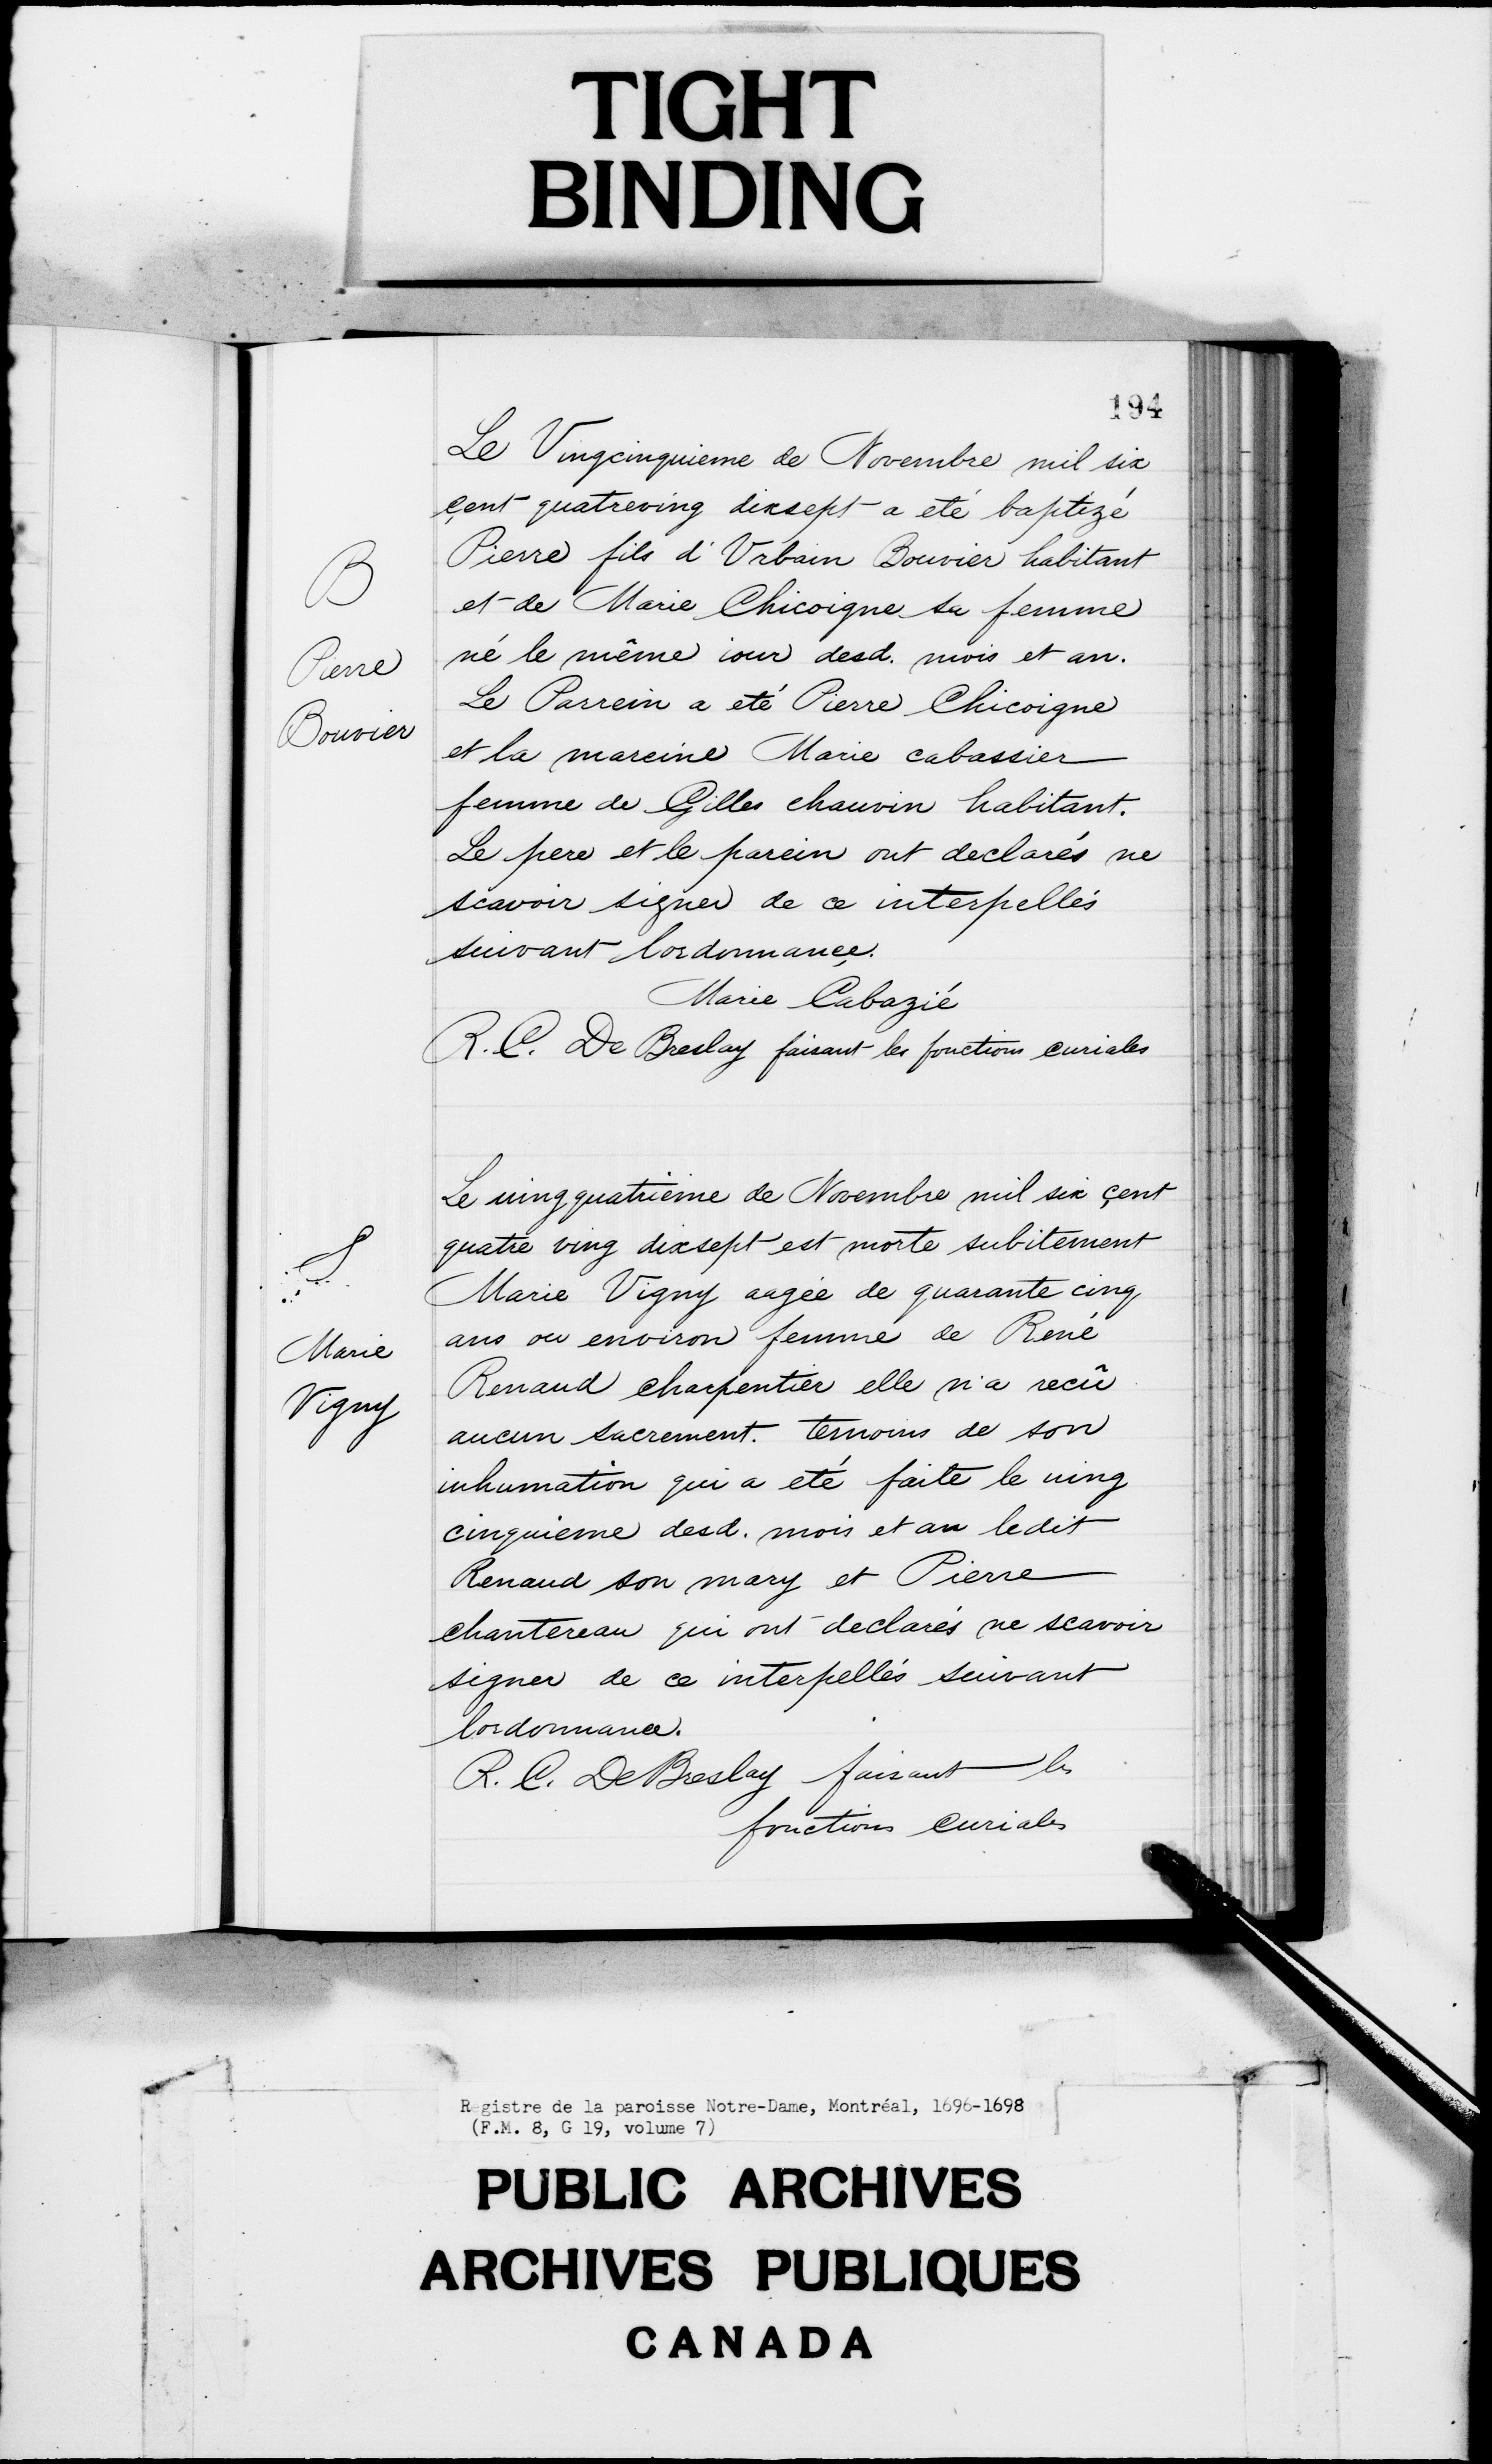 TIGHT
BINDING
194
Le Vingcinquieme de Novembre mil six
çent quatreving dixsept a eté baptizé
B
Pierre fils d'Vrbain Bouvier habitant
et de Marie Chicoigne sa femme
Pierre
né le même iour desd. mois et an.
Le Parrein a eté Pierre Chicoigne
Bouvier
et la mareine Marie cabassier
femme de Gilles chauvin habitant.
Le pere et le parein ont declarés ne
scavoir signer de ce interpellés
suivant lordonnançe.
Marie Cabazié
R. C. De Breslay faisant les fonctions curiales
Le uingquatrième de Novembre mil six çent
quatre ving dixsept est morte subitement
S
Marie Vigny aagée de quarante cinq
ans ou environ femme de René
Marie
Renaud charpentier elle n'a recû
Vigny
aucun sacrement. temoins de son
inhumation qui a eté faite le uing
cinquieme desd. mois et an ledit
Renaud son mary et Pierre
chantereau qui ont declarés ne scavoir
signer de ce interpellés suivant
lordonnance.
R. C. De Breslay faisant les
fonctions curiales
Registre de la paroisse Notre-Dame, Montréal, 1696-1698
(F.M. 8, G 19, volume 7)
PUBLIC ARCHIVES
ARCHIVES PUBLIQUES
CANADA